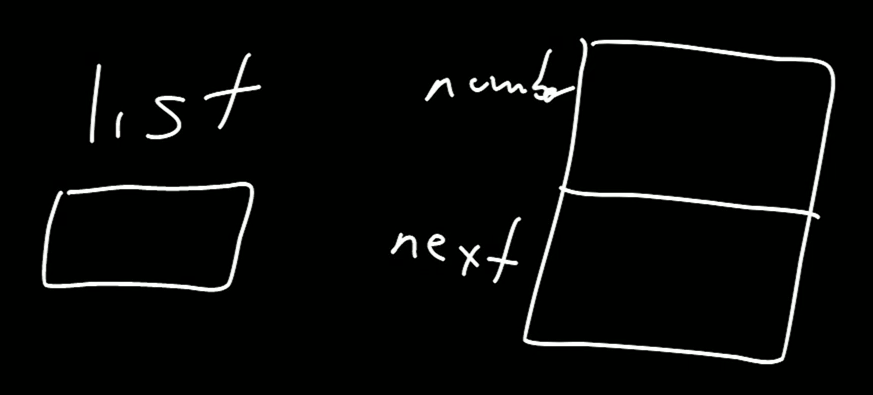 list
number
next